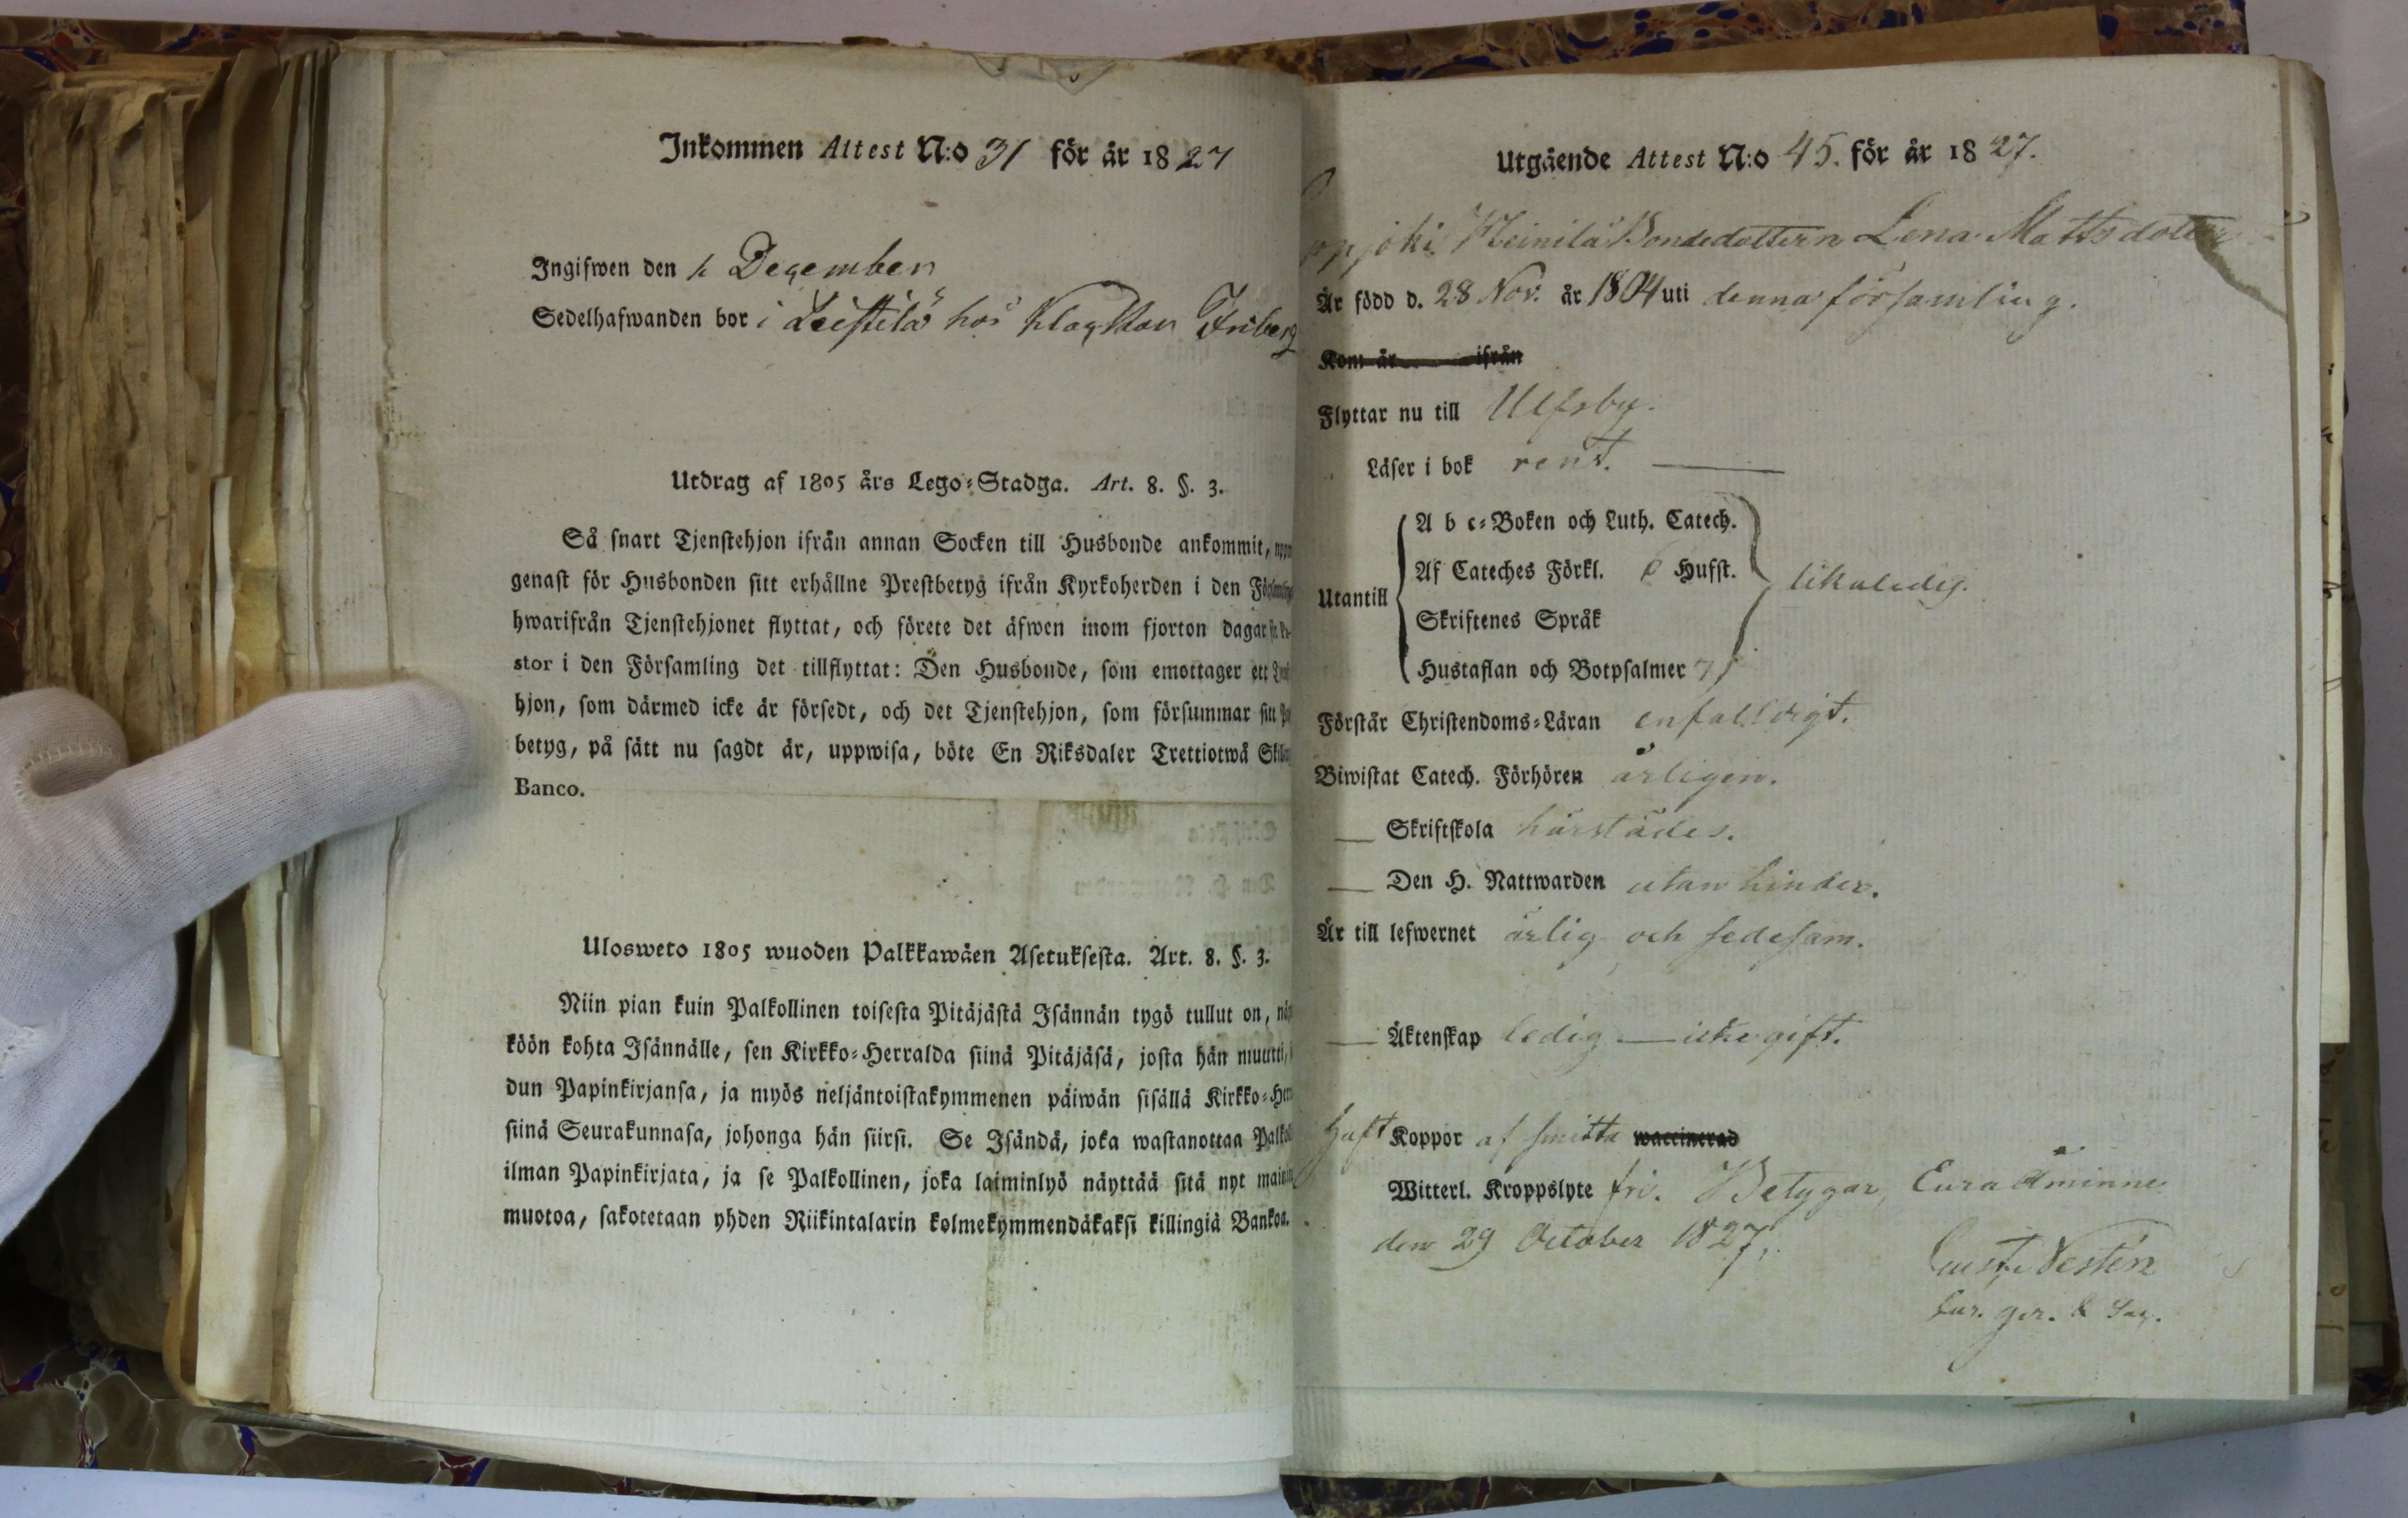 Inkommen Attest N:o 31 för år 1827
Ingifwen den 1 December
Sedelhafwanden bor i Leistilä hos Klockaren Friberg
Utdrag af 1805 års Lego-Stadga. Art. 8. §. 3.
Så snart Tjenstehjon ifrån annan Socken till Husbonde ankommit,
genast för Husbonden sitt erhållne Prestbetyg ifrån Kyrkoherden i den
hwarifrån Tjenstehjonet flyttat, och förete det äfwen inom fjorton dagar
stor i den Församling det tillflyttat: Den Husbonde, som emottager ett
hjon, som därmed icke är försedt, och det Tjenstehjon, som försummar sitt
betyg, på sätt nu sagdt är, uppwisa, böte En Riksdaler Trettiotwå
Banco.
Ulosweto 1805 wuoden Palkkawäen Asetuksesta. Art. 8. §. 3.
Niin pian kuin Palkollinen toisesta Pitäjästä Isännän tygö tullut on,
köön kohta Isännälle, sen Kirkko-Herralda siinä Pitäjäsä, josta hän muutti,
dun Papinkirjansa, ja myös neljäntoistakymmenen päiwän sisällä Kirkko-
siinä Seurakunnasa, johonga hän siirsi. Se Isändä, joka wastanottaa
ilman Papinkirjata, ja se Palkollinen, joka laiminlyö näyttää sitä nyt
muotoa, sakotetaan yhden Riikintalarin kolmekymmendäkaksi killingiä Bankoa.
Utgående Attest N:o 45. för år 1827.
Heinilä Bondedottern Lena Mattsdotter
Är född d. 28 Nov. år 1804 uti denna församling.
Kom år ifrån
Flyttar nu till Ulfsby.
Läser i bok rent.
Utantill
A b c-Boken och Luth. Catech.
Af Cateches Förkl. 6 Hufst.
Skriftenes Språk
Hustaflan och Botpsalmer 7
likaledes.
Förstår Christendoms-Läran enfalldigt.
Biwistat Catech. Förhören årligen.
— Skriftskola härstädes.
— Den H. Nattwarden utan hinder.
Är till lefwernet ärlig och sedesam.
— Äktenskap ledig — icke gift.
Haft Koppor af smitta waccinerad
Witterl. Kroppslyte fri. Betygar, Eura Åminne
den 29 October 1827.
Gust. Nestén